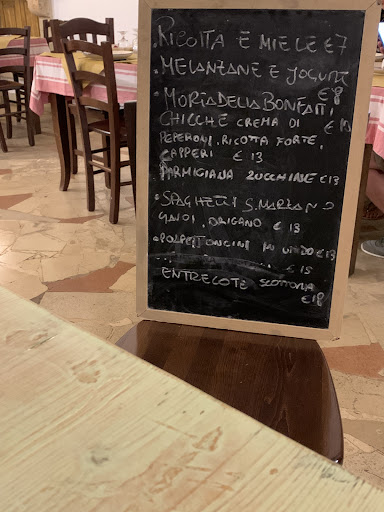 . RICOTTA E MIELE €7
. MELANZANE E YOGURT
€8
. MORTADELLA BONFATTI,
CHICCHE CREMA DI € 13
PEPERONI, RICOTTA FORTE,
CAPPERI € 13
PARMIGIANA ZUCCHINE €13
• SPAGHETTI S. MARZANO
ORIGANO € 13
• IN UMIDO €13
... € 15
ENTRECOTE SCOTTONA
€18